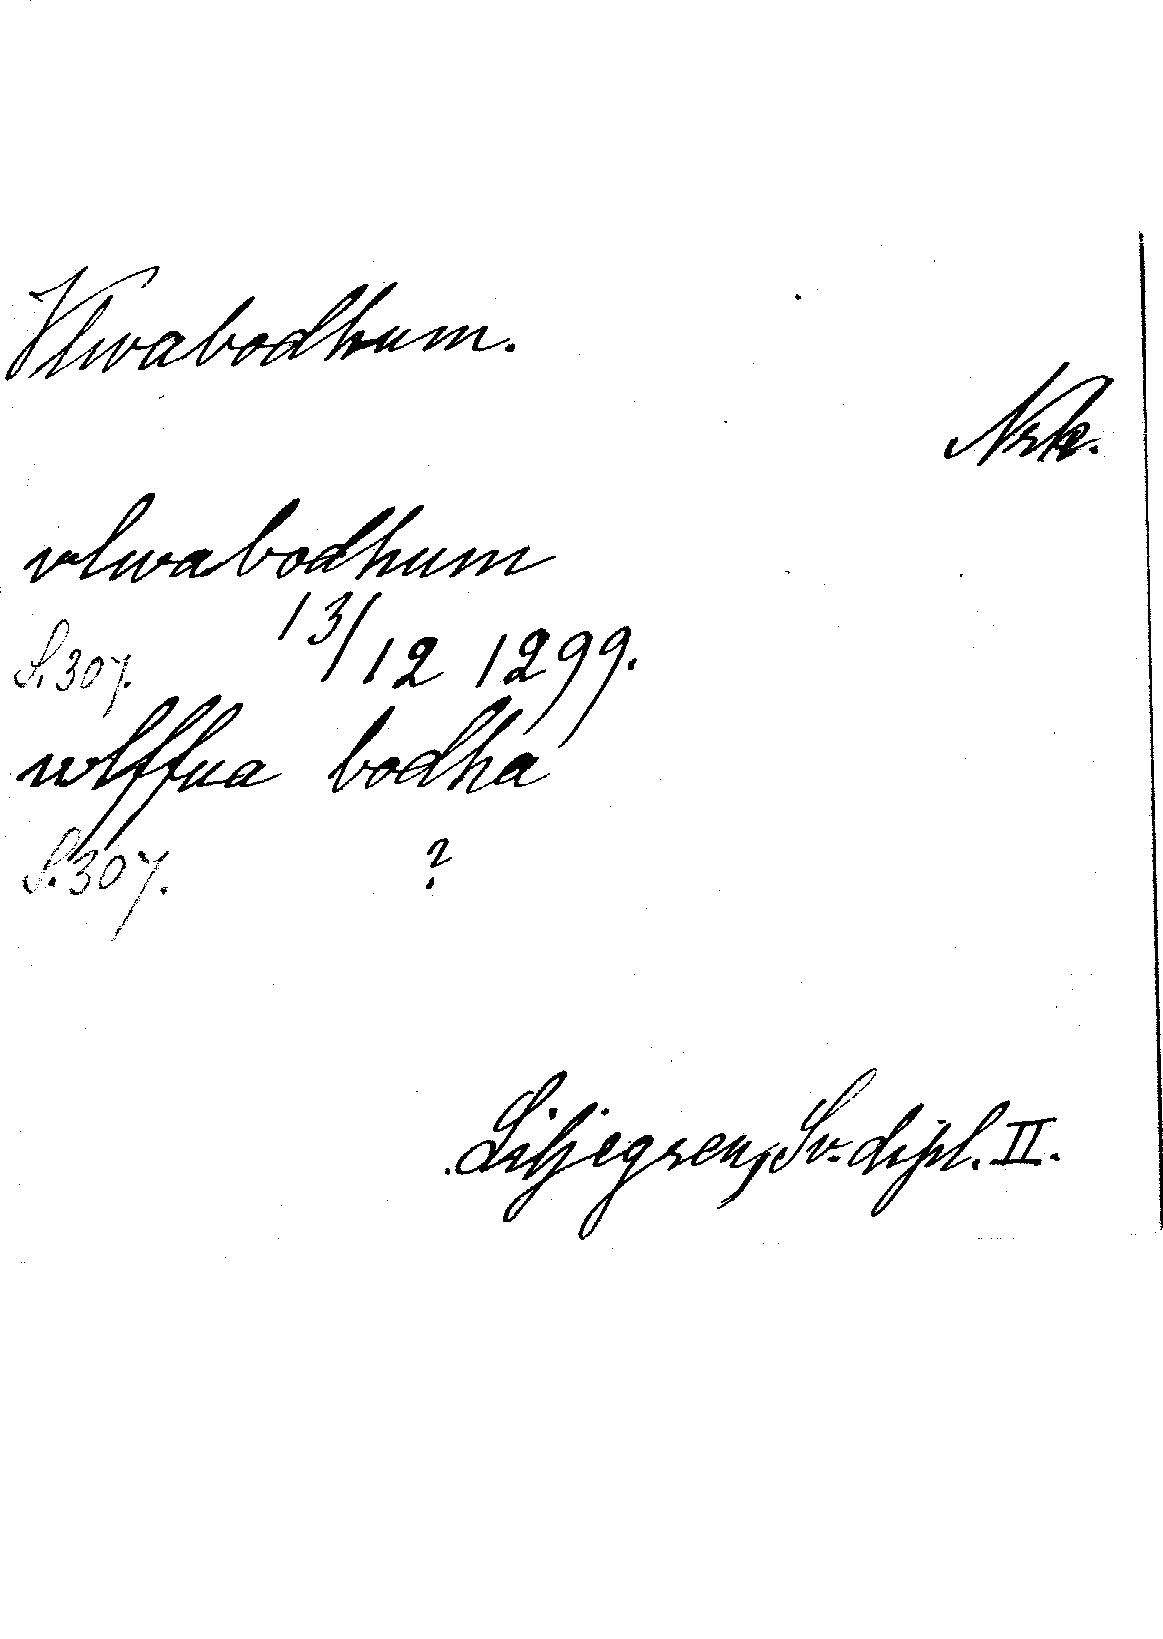 Vlwabodhum.
Nrk.
vlwabodhum
S. 307. 13/12 1299.
wlffua bodha
S. 307. ?
Liljegren, Sv. dipl. II.